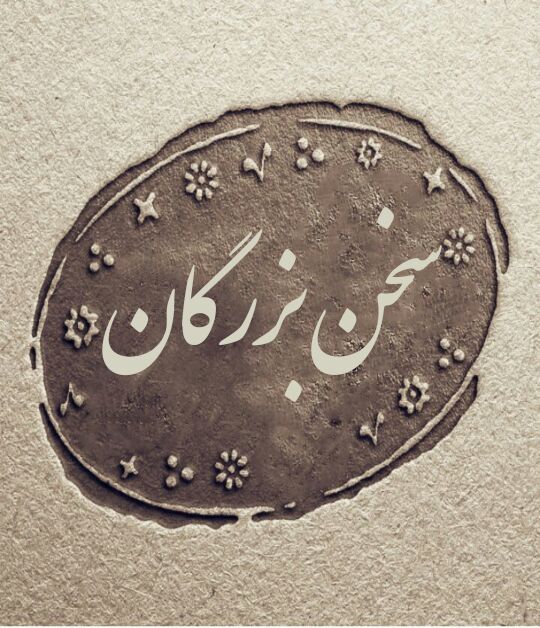 سخن بزرگان